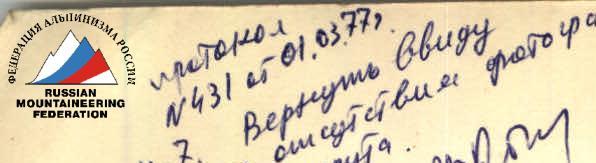 ФЕДЕРАЦИЯ АЛЬПИНИЗМА РОССИИ
RUSSIAN
MOUNTAINEERING
FEDERATION
протокол
N431 от 01.03.77г.
Вернуть ввиду
отсутствия фотогра